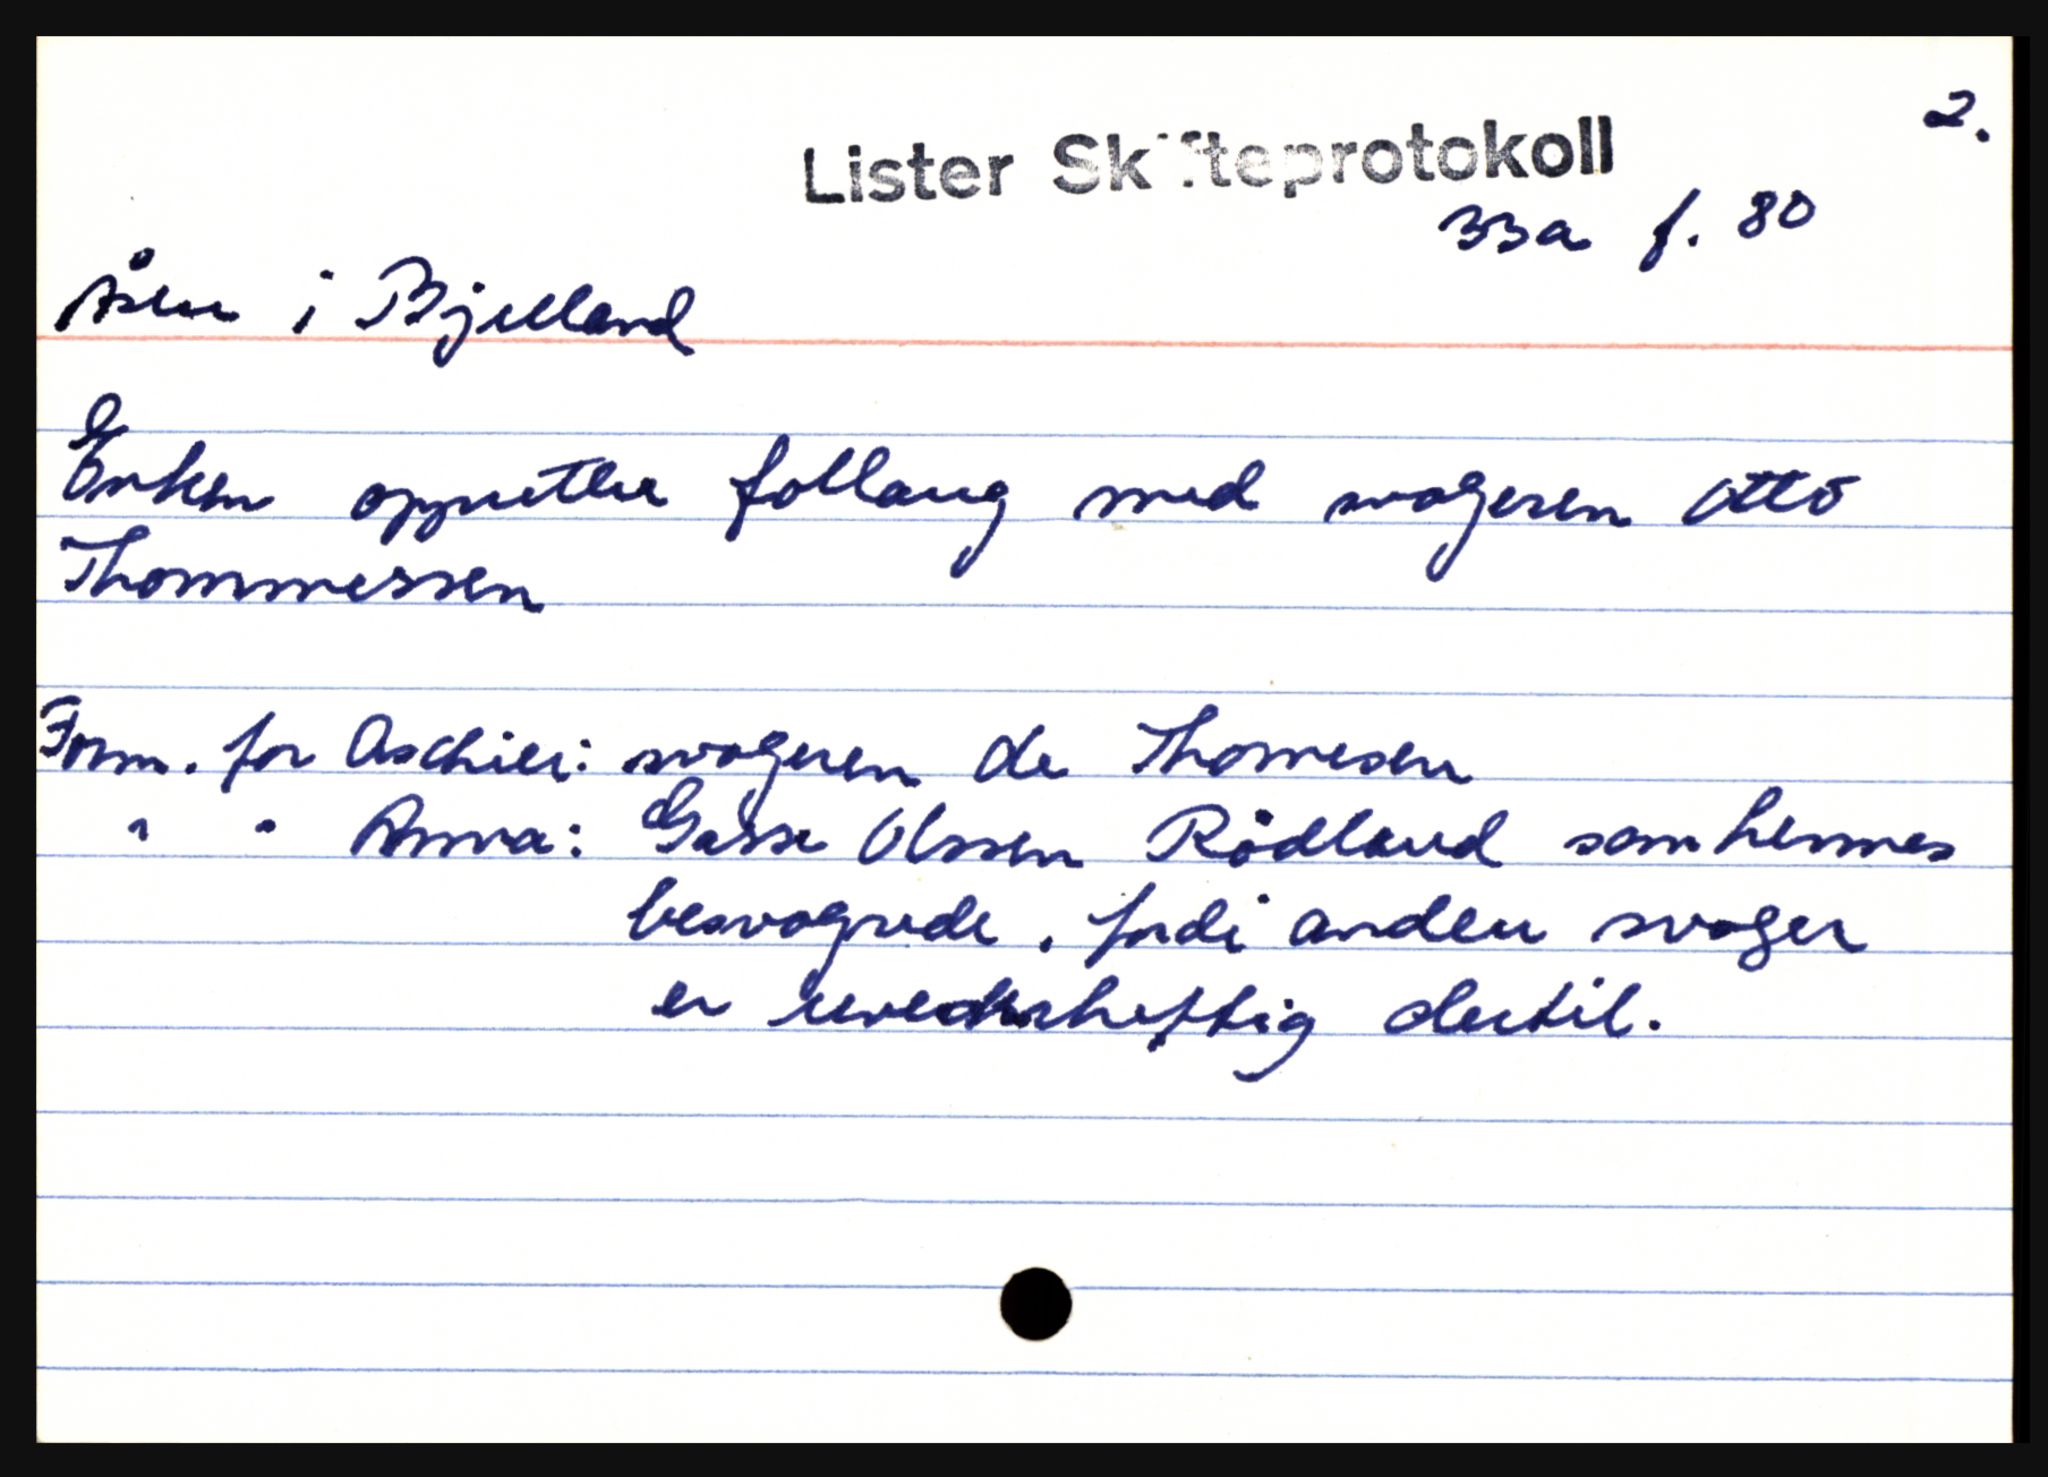 2.
Lister Skifteprotokoll
33a f. 80
Åsen i Bjelland
Enken oppretter follaug med svogeren Otto
Thommessen
Form. for Aschier: svogeren do Thomesen
" " Anna: Gasse Olssen Rødland som hennes
besvogrede, fordi anden svoger
er uvederheftig dertil.